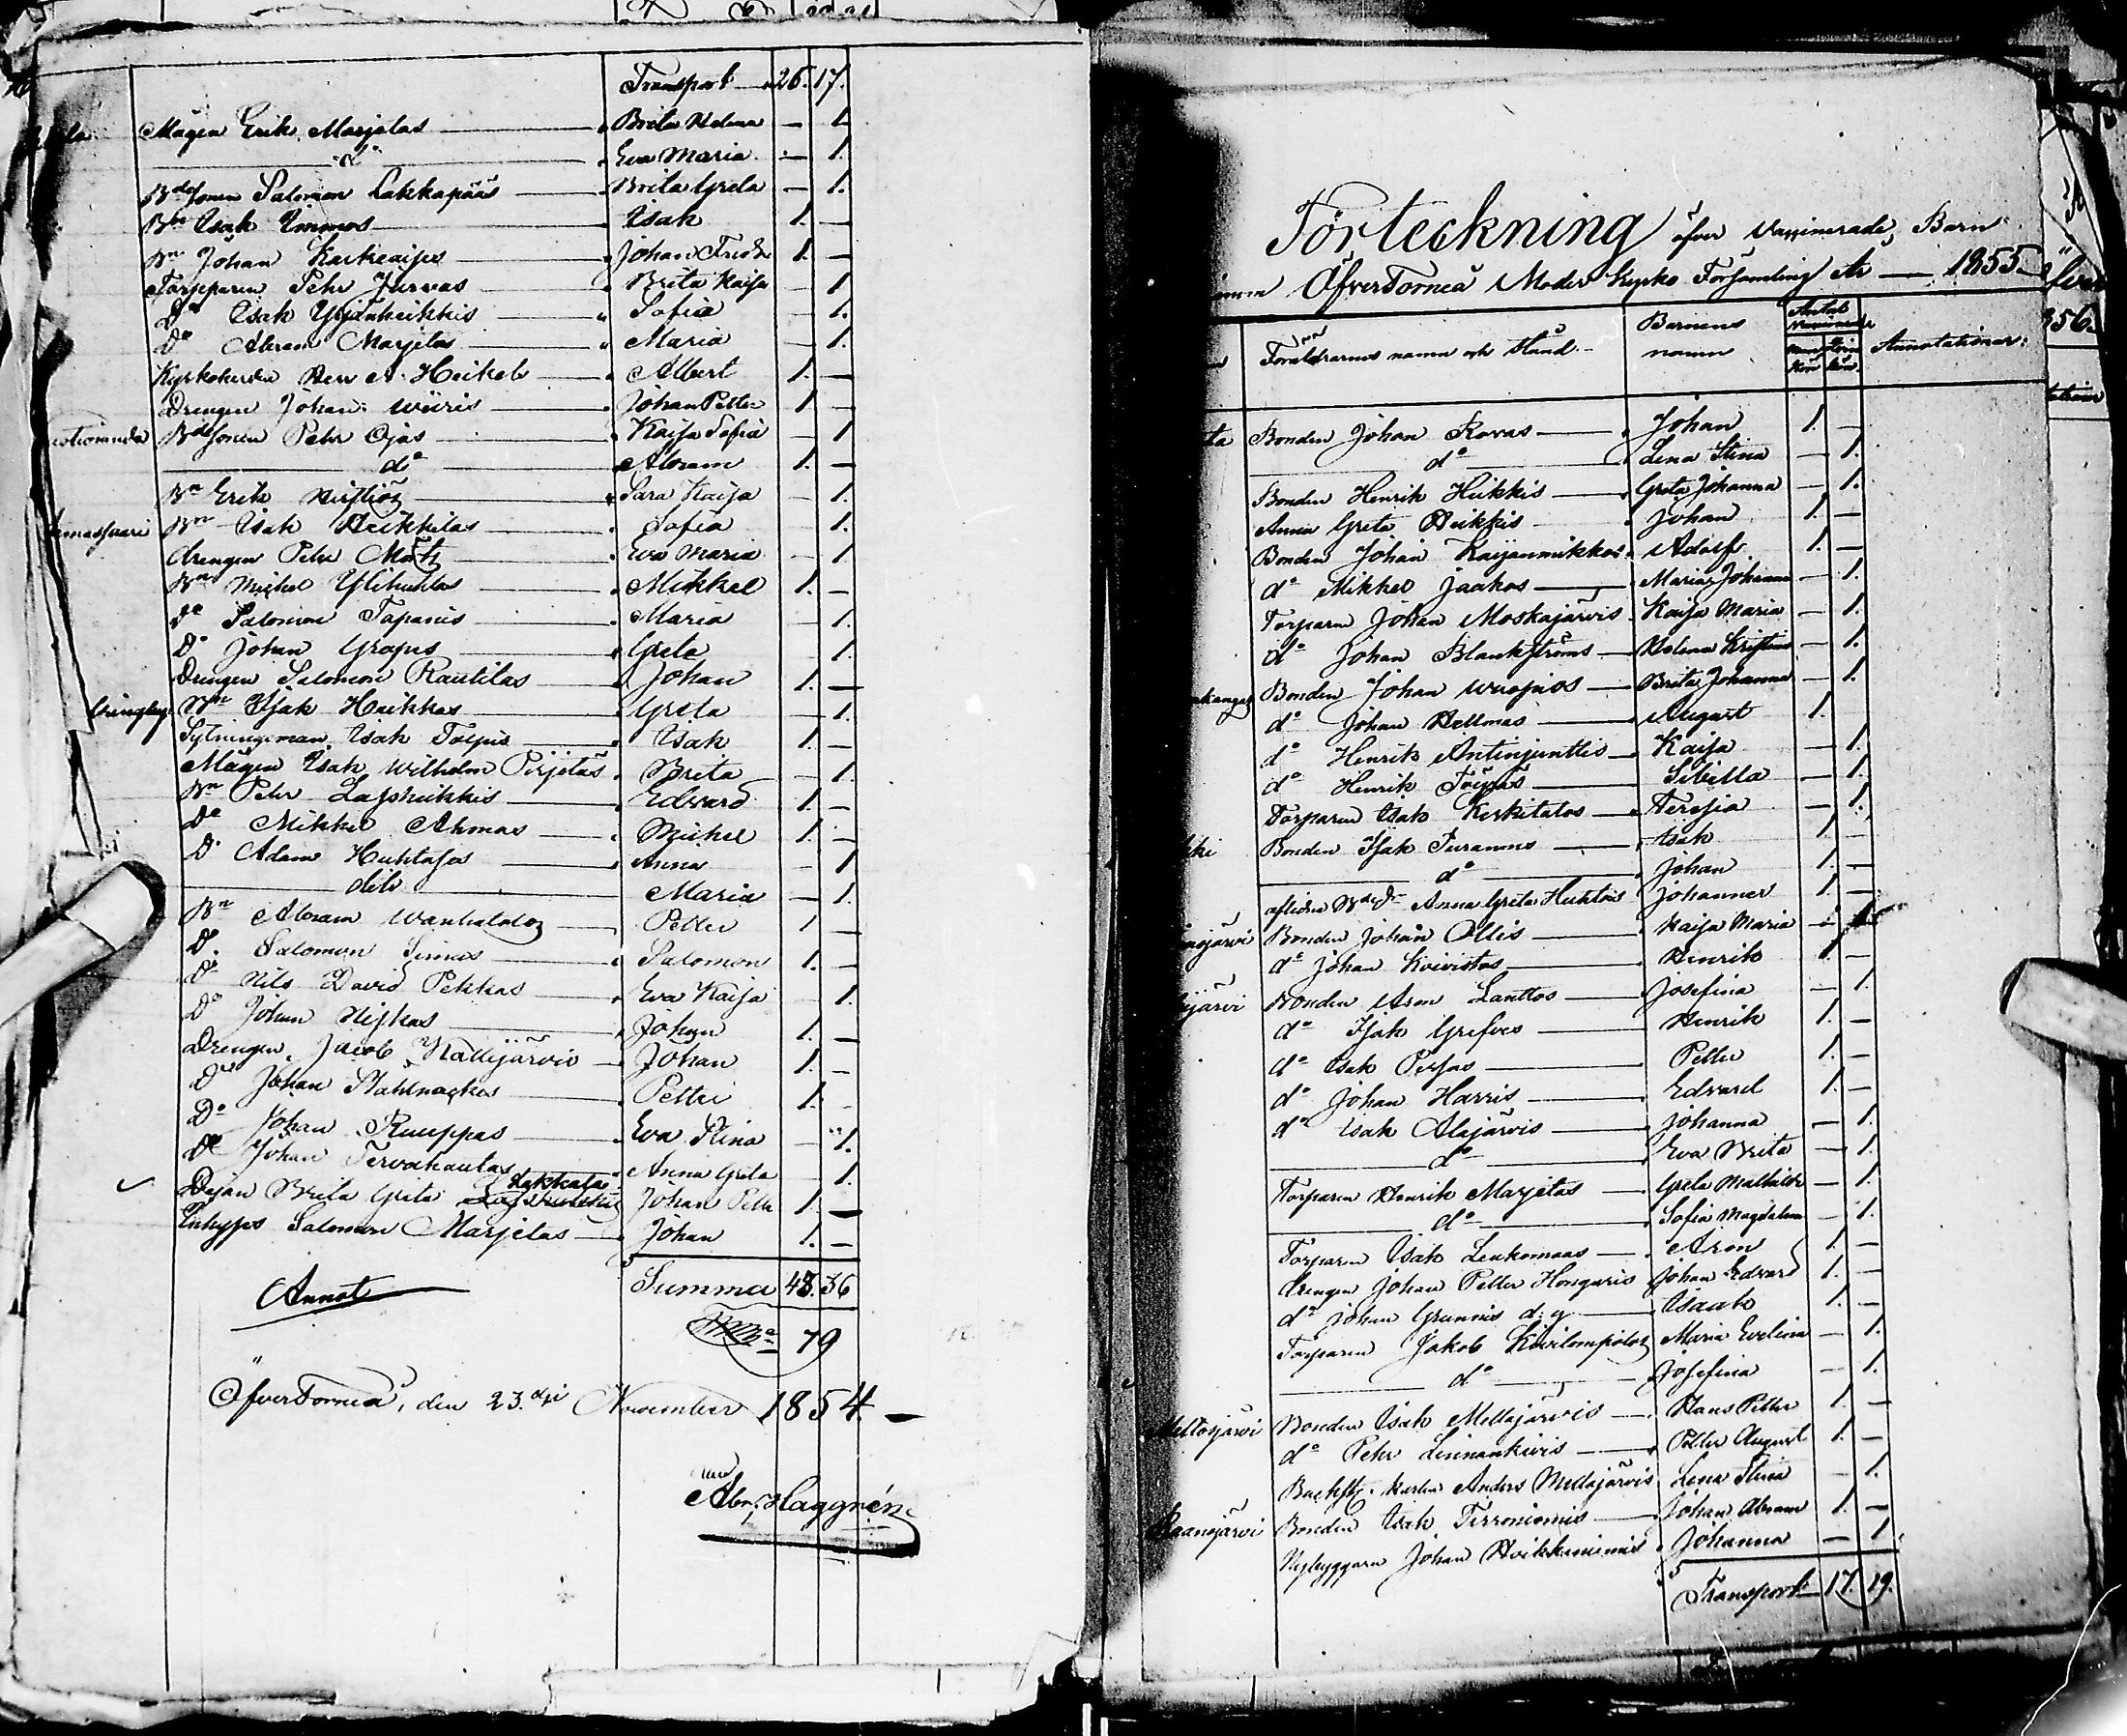 Transport 26. 17.
Mågen Erik Marjetas Brita Helena — 1.
d:o Eva Maria — 1.
B:dSonen Salomon Lakkapääs Brita Greta — 1.
B:n Isak Immos Isak 1. —
B:n Johan Johan Fredr 1. —
Torpparen Pehr Jurvas Brita Kajsa — 1
D:o Isak Yrjänheikkis Sofia — 1.
D:o Abram Marjetas Maria — 1.
Kyrkoherden Herr A. Heikel Albert 1. —
Drengen Johan Wiiris Johan Petter 1. —
B:dSonen Pehr Ojas Kajsa Sofia — 1
d:o Abram 1. —
B:n Erik Sara Kajsa — 1.
B:n Isak Heikkilas Sofia — 1.
drengen Pehr Eva Maria — 1
B:n Michel Mikkel 1. —
D:o Salomon Tapanis Maria — 1.
D:o Johan Grapes Greta — 1.
Drengen Salomon Rautilas Johan 1. —
B:n Isak Heikkas Greta — 1.
Sytningsman Isak Isak 1. —
Mågen Isak Wilhelm Pirjetäs Brita — 1.
B:n Pehr Edvard 1. —
D:o Mikkel Ahmas Michel 1. —
D:o Adam Huhtasas Anna — 1
dito Maria — 1.
B:n Abram Wanhatalos Petter 1 —
D:o Salomon Simas Salomon 1. —
D:o Nils David Pekkas Eva Kaisa — 1.
D:o Johan Niskas Johan 1. —
Drengen Jacob Nallijärvis Johan 1. —
D:o Johan Stålnackes Petter 1. —
D:o Johan Ruuppas Eva Stina — 1.
D:o Johan Tervahautas Anna Greta — 1.
Pigan Brita Greta Lakkala Johan Petter 1. —
Inhyses Salomon Marjetas Johan 1. —
Summa 43. 36
Annot S:ma 79
ÖfverTorneå, den 23:dje November 1854. —
Abr. Häggnér

Förteckning öfver Vaxinerade Barn
inom ÖfverTorneå Moder Kyrko Församling År — 1855
Föräldrarnes namn och Stånd Barnens namn Antal Vaccinerade Man Kön Qvin Kön Annotationer:
Bonden Johan Rovas Johan 1. —
d:o Lena Stina — 1.
Bonden Henrik Heikkis Greta Johanna — 1.
Anna Greta Heikkis Johan 1. —
Bonden Johan Kaijanmikkos Adolf 1. —
d:o Mikkel Jaakos Maria Johanna — 1.
Torparen Johan Moskajärvis Kajsa Maria — 1.
d:o Johan Blankströms Helena Kristina — 1.
Bonden Johan Wuojnos Brita Johanna — 1.
d:o Johan Hallmas August 1.
d:o Henrik Antinjunttis Kajsa — 1.
d:o Henrik Sibilla — 1.
Torparen Isak Keskitalos Teresia — 1.
Bonden Isak Turanens Isak 1 —
d:o Johan 1. —
aflidna Anna Greta Huhtas Johannes 1. —
Bonden Johan Ollis Kaisa Maria —
d:o Johan Koivistos Henrik 1. —
Bonden Aron Lanttos Josefina — 1.
d:o Isak Grefves Henrik 1. —
d:o Isak Persas Petter 1. —
d:o Johan Harris Edvard 1. —
d:o Isak Alajärvis Johanna — 1.
d:o Eva Brita — 1.
Torparen Henrik Marjetas Greta Mathilda — 1.
d:o Sofia Magdalena — 1.
Torparen Isak Leukomaas Aron 1. —
drengen Johan Petter Hongaris Johan Edvard 1. —
d:o Johan Grannis d:y Isaak 1. —
Torparen Jakob Kivilompolos Maria Evelina — 1.
d:o Josefina — 1.
Mellosjärvi Bonden Isak Mellajärvis Hans Petter 1. —
d:o Pehr Linnankivis Petter August 1. —
Backst. karlen Anders Mellajärvis Lena Stina — 1.
Raanojärvi Bonden Isak Terroniemis Johan Abram 1. —
Nybyggaren Johan Heikkiniemis Johanna — 1.
Transport 17. 19.